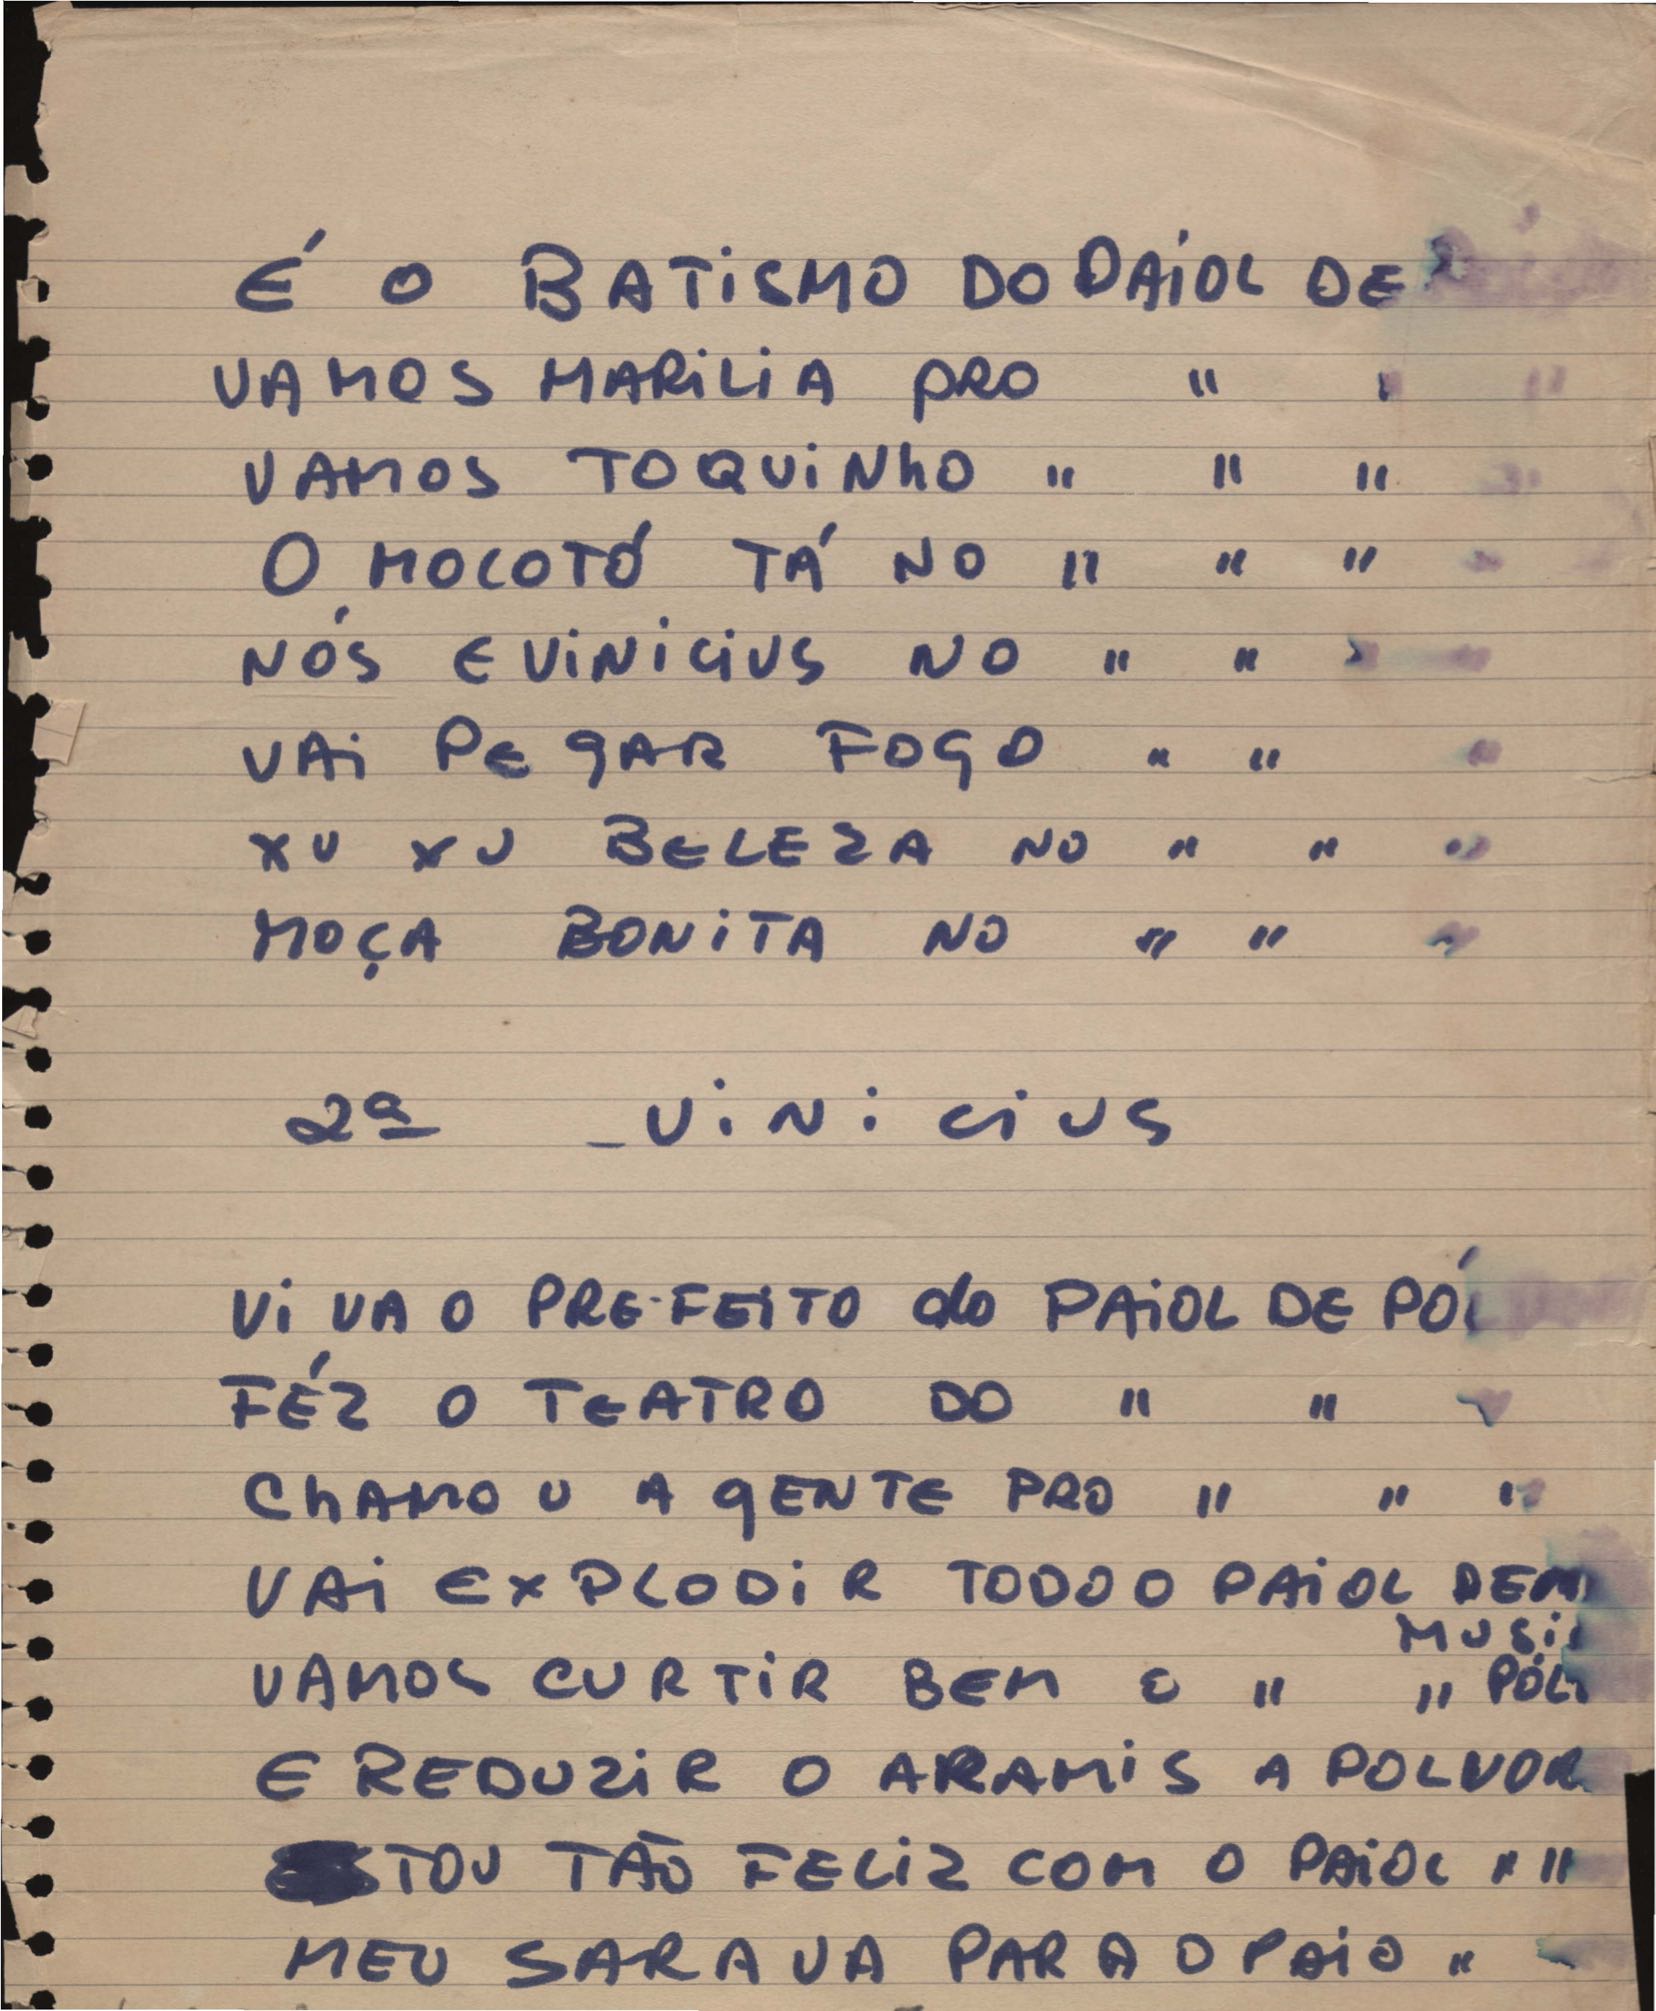 É O BATISMO DO PAIOL DE
VAMOS MARILIA PRO " " "
VAMOS TOQUINHO " " " "
O MOCOTÓ TÁ NO " " " "
NÓS E VINICIUS NO " "
VAI PEGAR FOGO " " "
XU XU BELEZA NO " " "
MOÇA BONITA NO " " "
2ª _ VINICIUS
VIVA O PREFEITO do PAIOL DE
FÉZ O TEATRO DO " "
CHAMOU A GENTE PRO " " "
VAI EXPLODIR TODO O PAIOL DE
VAMOS CURTIR BEM O " "
E REDUZIR O ARAMIS A
TOU TÃO FELIZ COM O PAIOL " "
MEU SARAVA PARA O PAIO "